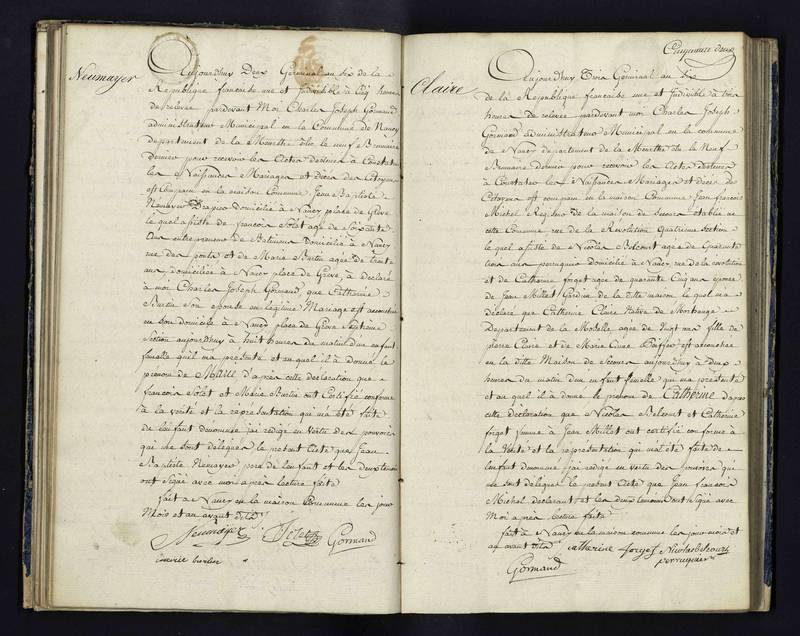 Neumayer
Aujourdhuy Deux Germinal an six de la
Republique francaise une et Indivisible à Cinq heures
de relevée pardevant Moi Charles Joseph Gormand
administrateur Municipal en la Commune de Nancy
departement de la Meurthe Elû le neuf Brumaire
dernier pour recevoir les Actes destinés à Constater
les Naissances Mariages et Décès des Citoyens
est Comparu en la maison Commune Jean Baptiste
Nemayer Domicilié à Nancy place de Grève
lequel assisté de francois Tolet agé de Soixante
Ans entrepreneur de Batimens Domicilié à Nancy
rue des ponts et de Marie Burtin agée de trente
ans, domiciliée à Nancy place de Grève, à déclaré
à moi Charles Joseph Gormand, que Catherine
Burtin Son épouse en légitime Mariage est accouchée
en son domicile à Nancy place de Grève Septieme
Section aujourdhuy à huit heures du matin d'un enfant
femelle qu'il m'a présenté et auquel il à Donné le
prenom de d'après cette déclaration que
francois Tolet et Marie Burtin ont Certifié conforme
à la vérité et la représentation qui m'a été faite
de l'enfant denommé, j'ai rédigé en Vertu des pouvoirs
qui me sont délégués le présent Acte que Jean
Baptiste Nemayer pere de l'enfant et les deux temoins
ont Signé avec moi après lecture faite
fait à Nancy en la maison Commune les jour
Mois et an avant dits
Gormand
Cinquante deux
Claire
Aujourdhuy Trois Germinal an Six
de la Republique francaise une et Indivisible à trois
heures de relevée pardevant moi Charles Joseph
Gormand administrateur Municipal en la commune
de Nancy departement de la Meurthe élu le Neuf
Brumaire dernier pour recevoir les Actes destinés
à Constater les Naissances Mariages et décès des
Citoyens est comparu en la maison Commune Jean francois
Michel Regisseur de la maison de Secours établie en
cette Commune rue de la Revolution Quatrieme Section
lequel assisté de Nicolas Belcourt agé de Quarante
trois ans perruquier domicilié à Nancy rue de la revolution
et de Catherine forget agée de quarante Cinq ans épouse
de Jean Millot Gardien de la ditte maison lequel m'a
déclaré que Catherine Claire Native de
Departement de la Moselle agée de Vingt ans fille de
pierre Claire et de Marie Anne est accouchée
en la ditte Maison de Secours aujourdhuy à deux
heures du matin d'un enfant femelle qui m'a présenté
et auquel il à donné le prenom de Catherine d'après
cette déclaration que Nicolas Belcourt et Catherine
forget femme à Jean Millot ont certifié conforme à
la Vérité et la représentation qui m'a été faite de
l'enfant denommé j'ai rédigé en vertu des pouvoirs qui
me sont délégués le présent Acte que Jean francois
Michel déclarant et les deux temoins ont Signé avec
Moi après lecture faite
fait à Nancy en la maison commune les jour mois et
an avant dits catherine forget Nicolas belcourt
perruquier
Gormand